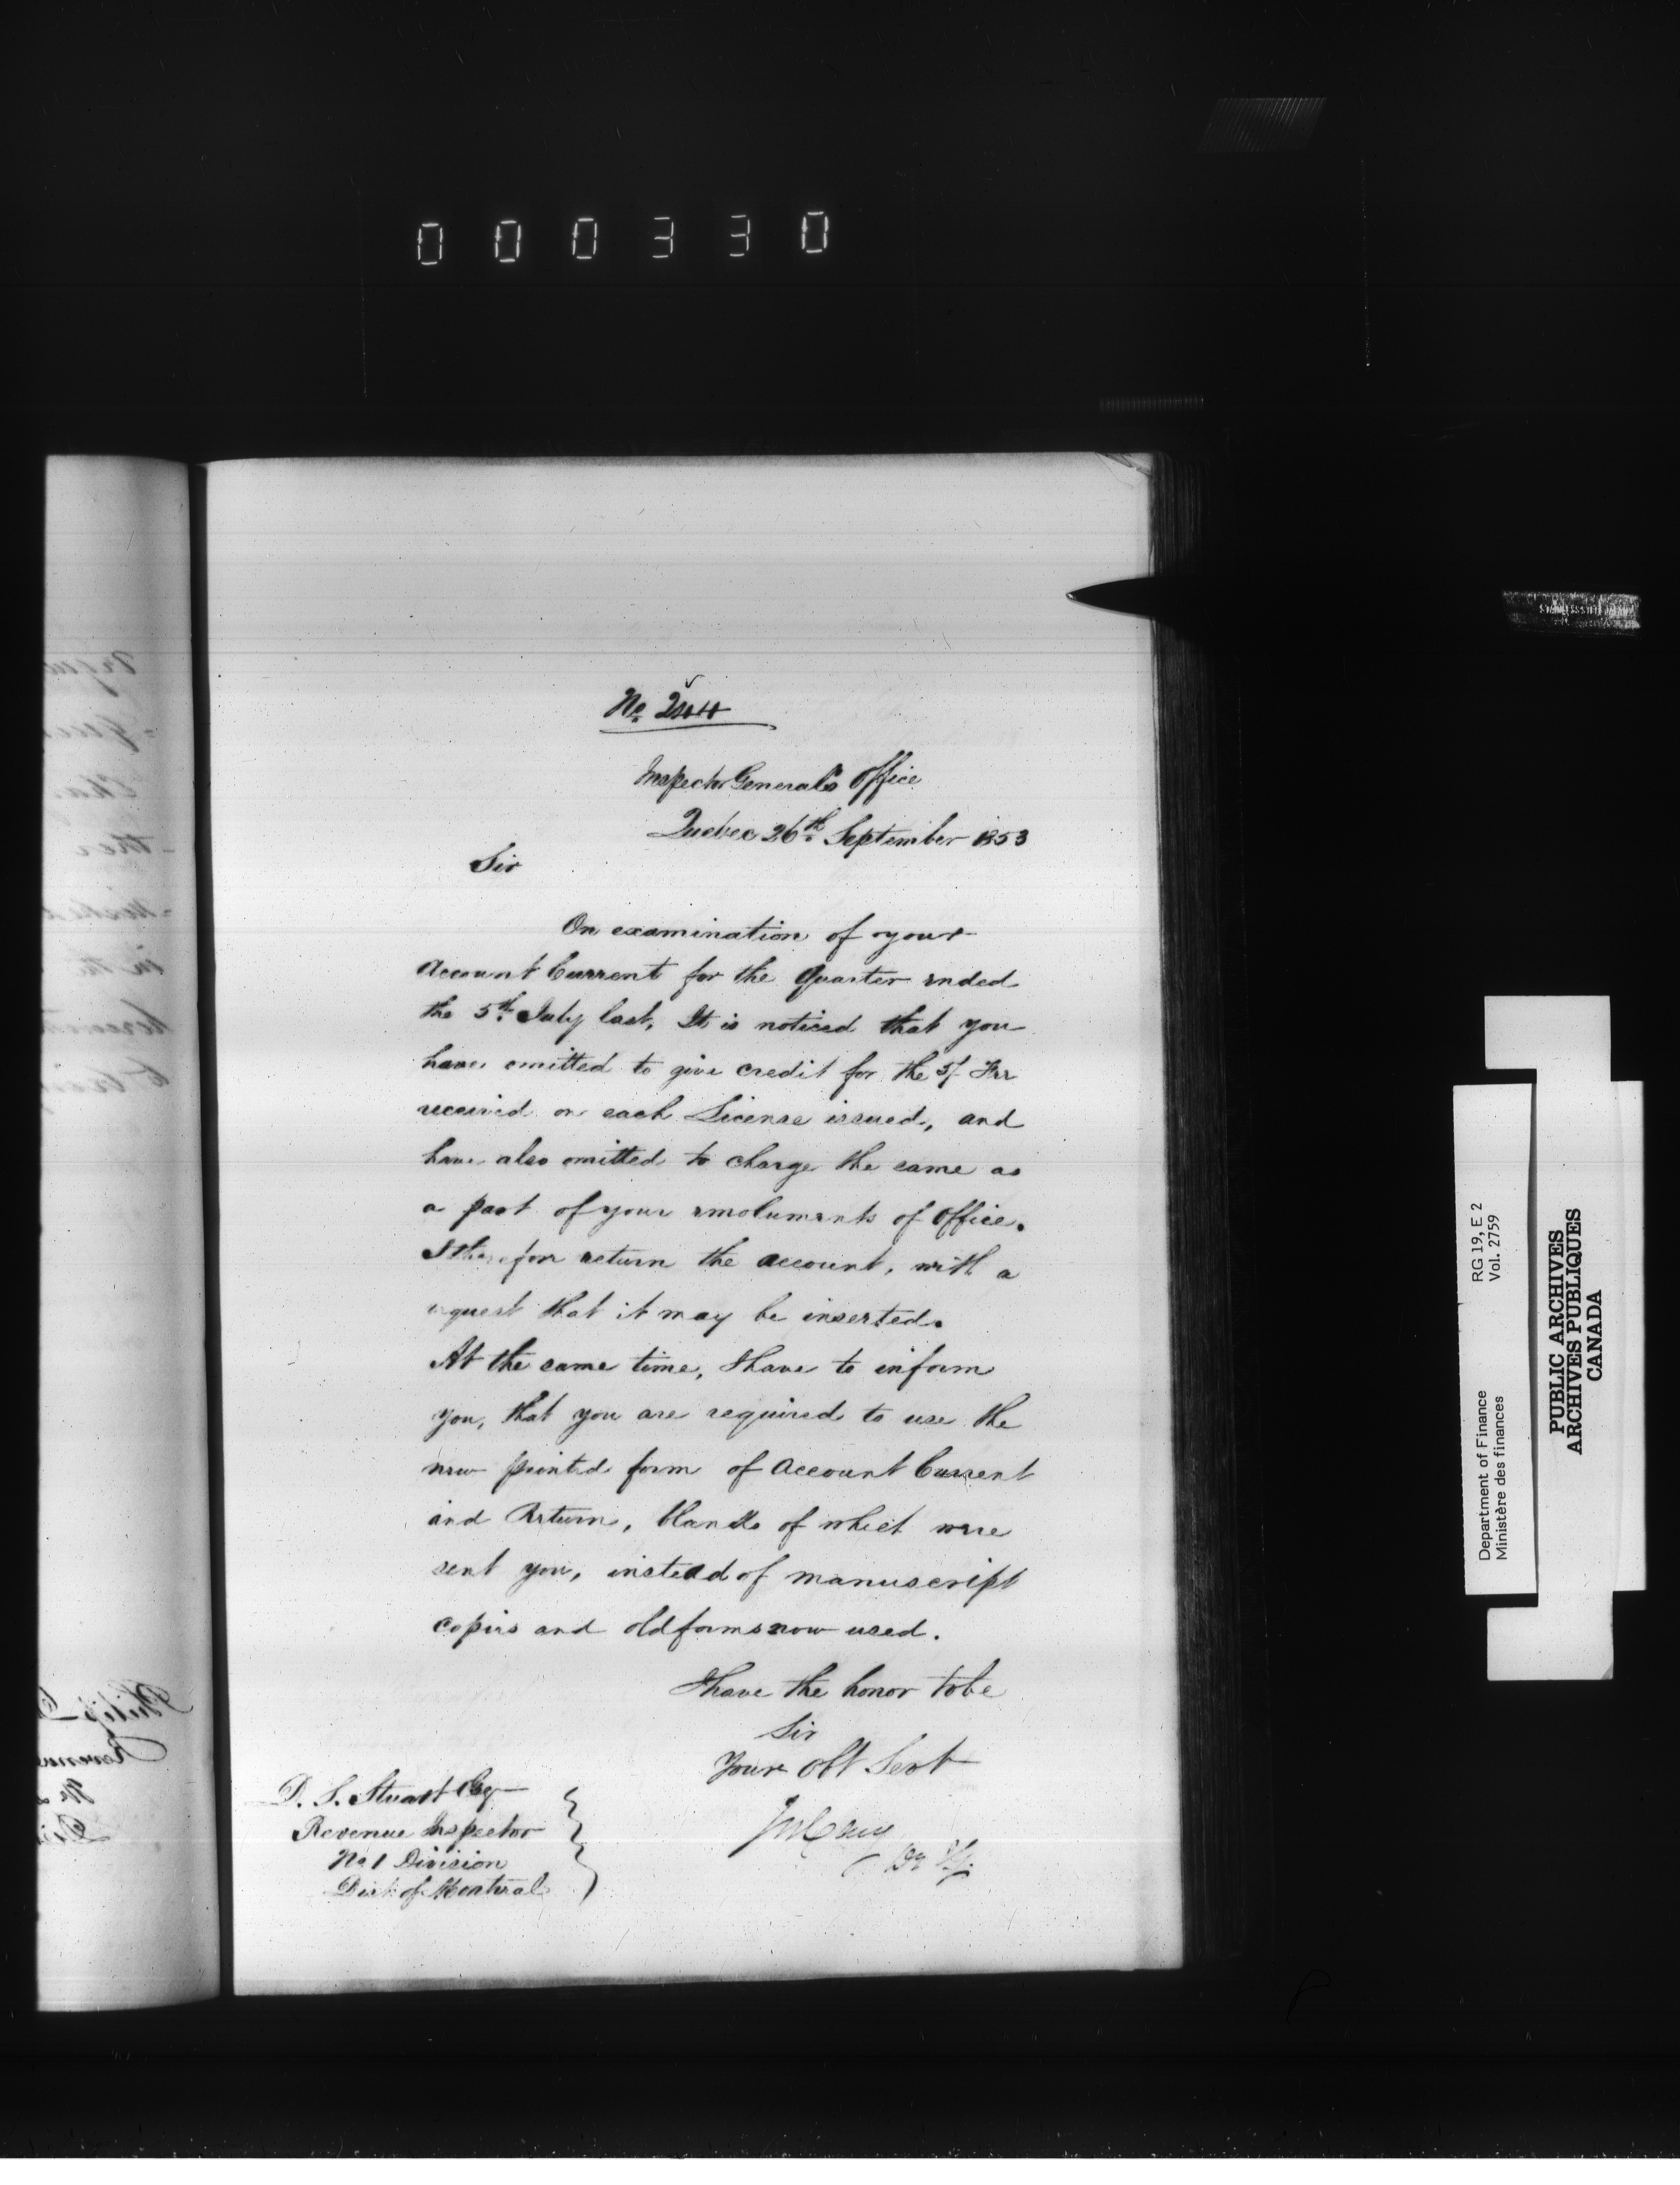 000330
No. 2444
Inspector General's Office
Quebec 26th. September 1853
Sir
On examination of your
Account Current for the Quarter ended
the 5th. July last, It is noticed that you
have omitted to give credit for the 5/- Fee
received on each License issued, and
have also omitted to charge the same as
a part of your emoluments of Office.
I therefore return the account, with a
request that it may be inserted.
At the same time, I have to inform
you, that you are required to use the
new printed form of Account Current
and Return, blanks of which were
sent you, instead of manuscript
copies and old forms now used.
I have the honor to be
Sir
Your Obt Servt
D. S. Stuart Esq
Revenue Inspector
No 1 Division
Dist of Montreal
RG 19, E 2
Vol. 2759
Department of Finance
Ministère des finances
PUBLIC ARCHIVES
ARCHIVES PUBLIQUES
CANADA